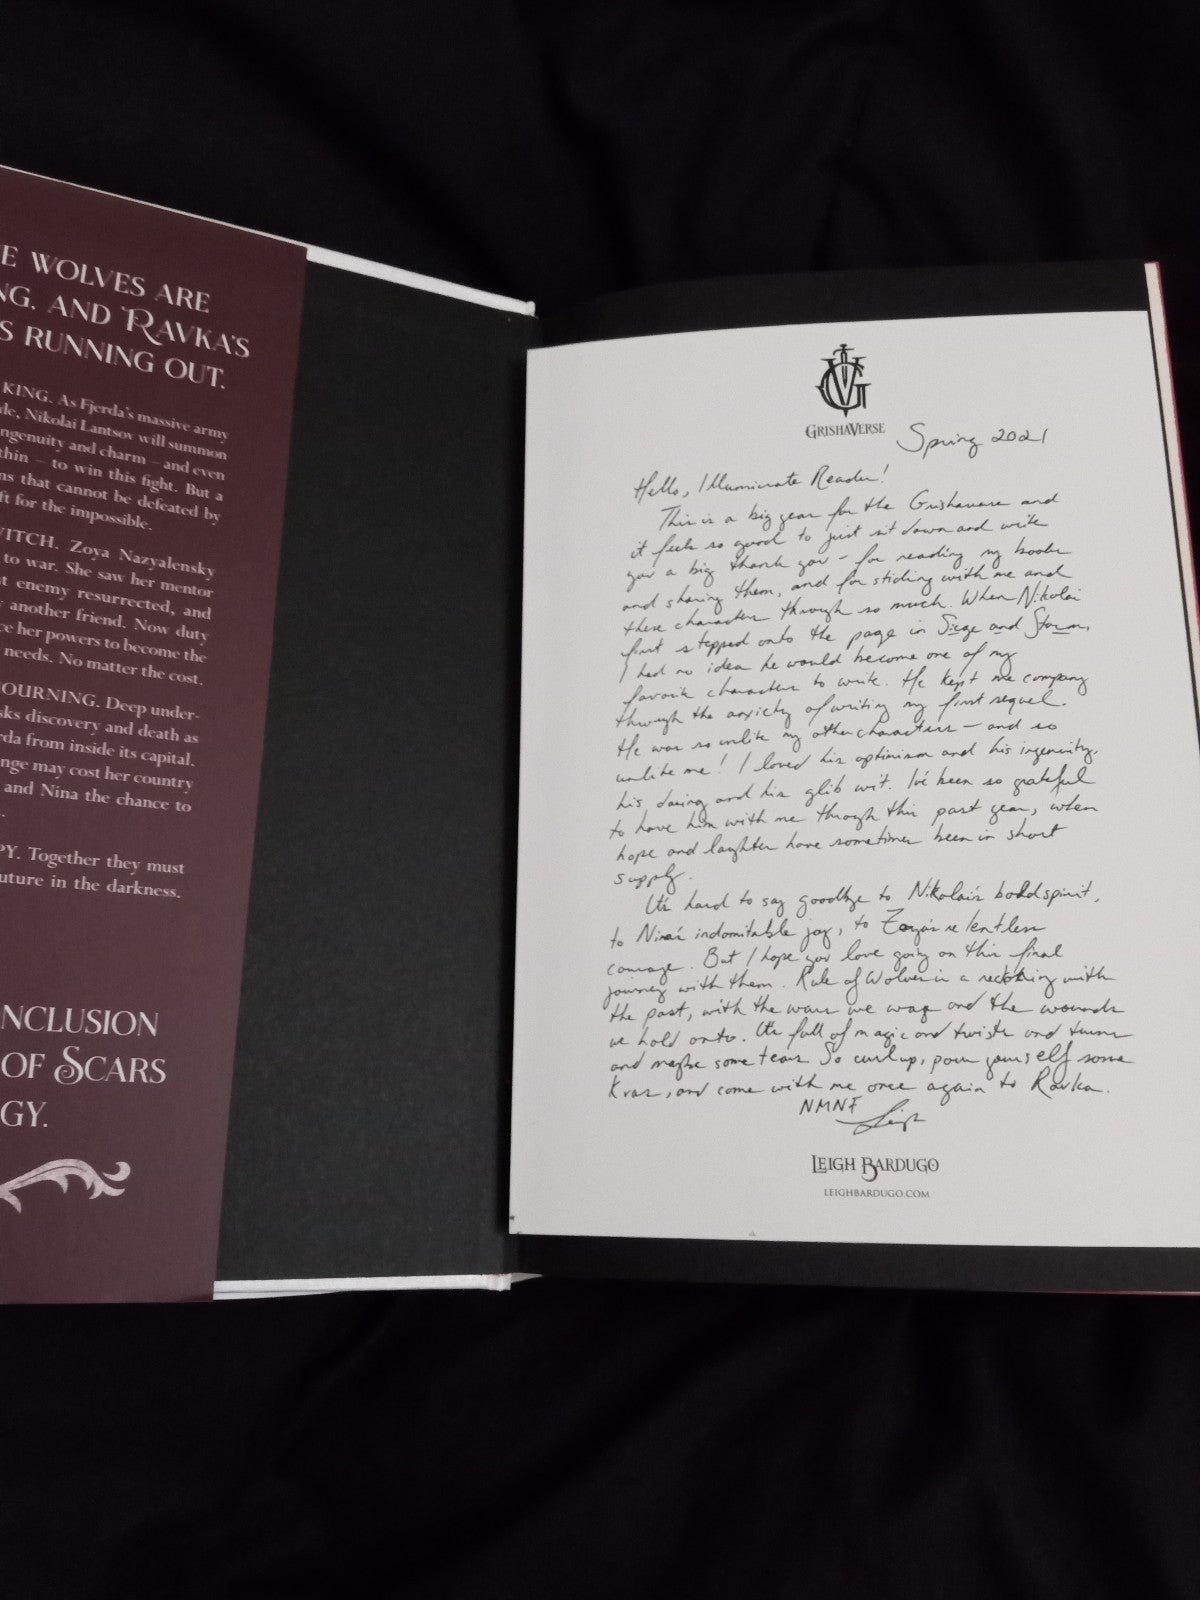 E WOLVES ARE
NG. AND RAVKA'S
S RUNNING OUT.
KING. As Fjerda's massive army
de, Nikolai Lantsov will summon
ngenuity and charm—and even
thin—to win this fight. But a
ns that cannot be defeated by
ft for the impossible.
VITCH. Zoya Nazyalensky
to war. She saw her mentor
st enemy resurrected, and
y another friend. Now duty
ce her powers to become the
needs. No matter the cost.
OURNING. Deep under-
sks discovery and death as
rda from inside its capital.
nge may cost her country
and Nina the chance to
PY. Together they must
uture in the darkness.
NCLUSION
OF SCARS
GY.
GRISHAVERSE
Spring 2021
Hello, Illumicrate Reader!
This is a big year for the Grishaverse and
it feels so good to just sit down and write
you a big thank you - for reading my books
and sharing them, and for sticking with me and
these characters through so much. When Nikolai
first stepped onto the page in Siege and Storm,
I had no idea he would become one of my
favorite characters to write. He kept me company
through the anxiety of writing my first sequel.
He was so unlike my other characters — and so
unlike me! I loved his optimism and his ingenuity,
his daring and his glib wit. I've been so grateful
to have him with me through this past year, when
hope and laughter have sometimes been in short
supply.
It's hard to say goodbye to Nikolai's bold spirit,
to Nina's indomitable joy, to Zoya's relentless
courage. But I hope you love going on this final
journey with them. Rule of Wolves is a reckoning with
the past, with the wars we wage and the wounds
we hold onto. It's full of magic and twists and turns
and maybe some tears. So curl up, pour yourself some
Kvas, and come with me once again to Ravka.
NMNF
Leigh
LEIGH BARDUGO
LEIGHBARDUGO.COM